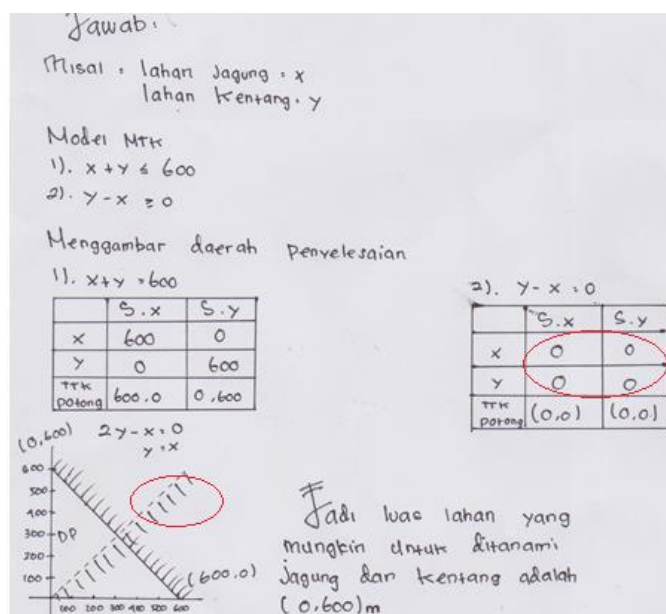 Jawab:
Misal : lahan Jagung : x
lahan Kentang : y
Model MTK
1). x + y ≤ 600
2). y - x ≥ 0
Menggambar daerah Penyelesaian
1). x+y = 600
S.x S.y
x 600 0
y 0 600
TTK potong 600.0 0,600
2). y - x = 0
S.x S.y
x 0 0
y 0 0
TTK potong (0,0) (0,0)
(0,600)
2y-x=0
y=x
600
500
400
300
200
100
DP
(600.0)
100 200 300 400 500 600
Jadi luas lahan yang
mungkin untuk ditanami
Jagung dan Kentang adalah
(0,600) m